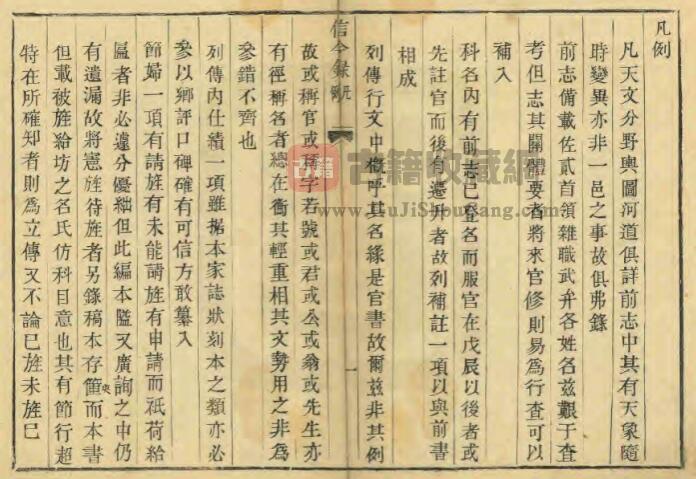 凡例
凡天文分野輿圖河道俱詳前志中其有天象隨
時變異亦非一邑之事故俱弗錄
前志備載佐貳首領雜職武弁各姓名茲艱于查
考但志其關體要者將來官修則易為行查可以
補入
科名內有前志已登名而服官在戊辰以後者或
先註官而後有遷升者故列補註一項以與前書
相成
列傳行文中概呼其名緣是官書故爾茲非其例
信今錄 凡
一
故或稱官或稱字若號或君或公或翁或先生亦
有徑稱名者總在衡其輕重相其文勢用之非為
參錯不齊也
列傳內仕績一項雖据本家誌狀刻本之類亦必
參以鄉評口碑確有可信方敢纂入
節婦一項有請旌有未能請旌有申請而祇荷給
匾者非必遽分優絀但此編本隘又廣詢之中仍
有遺漏故將憲旌待旌者另錄稿本存篋而本書
夾
但載被旌給坊之名氏仿科目意也其有節行超
特在所確知者則為立傳又不論已旌未旌已
古籍收藏網
www.GuJiShouCang.com